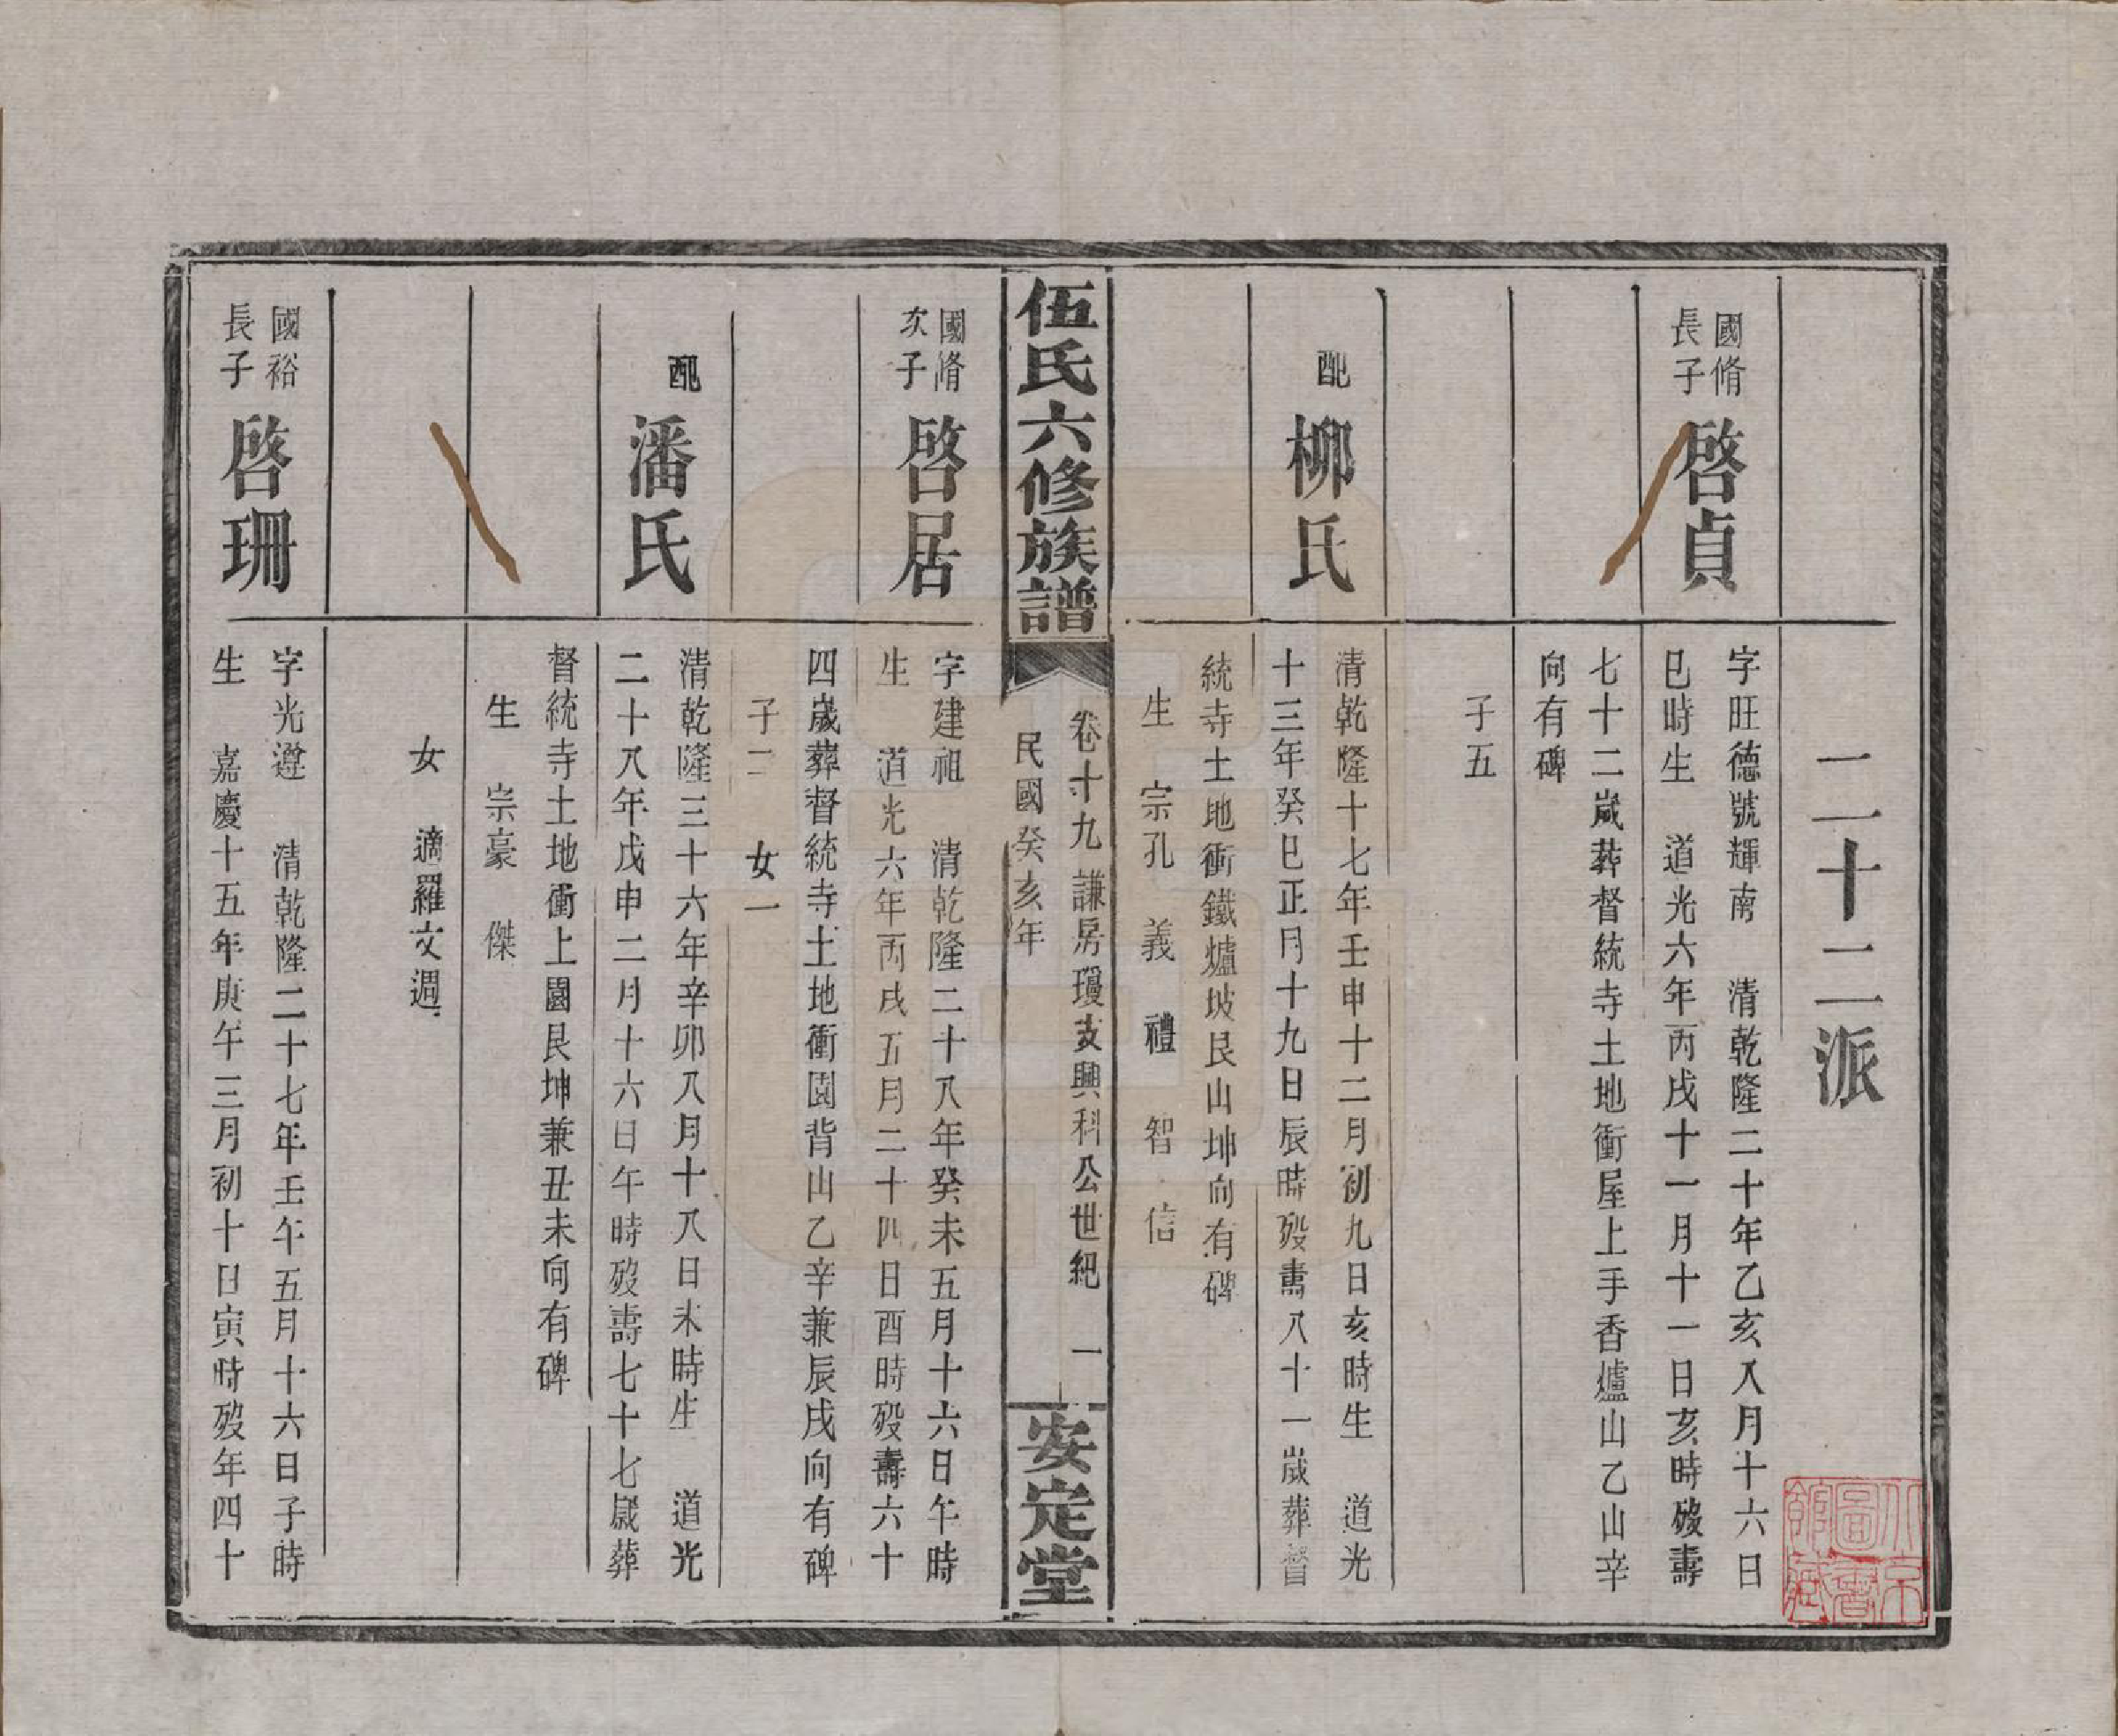 二十二派
國脩
長子
啓貞
字旺德號輝南 清乾隆二十年乙亥八月十六日
巳時生 道光六年丙戌十一月十一日亥時歿壽
七十二歲葬督統寺土地衝屋上手香爐山乙山辛
向有碑
子五
配
柳氏
清乾隆十七年壬申十二月初九日亥時生 道光
十三年癸巳正月十九日辰時歿壽八十一歲葬督
統寺土地衝鐵爐坡艮山坤向有碑
生 宗孔 義 禮 智 信
伍氏六修族譜
卷十九 謙房瓊支興科公世紀 一
民國癸亥年
安定堂
國脩
次子
啓居
字建祖 清乾隆二十八年癸未五月十六日午時
生 道光六年丙戌五月二十四日酉時歿壽六十
四歲葬督統寺土地衝園背山乙辛兼辰戌向有碑
子二 女一
配
潘氏
清乾隆三十六年辛卯八月十八日未時生 道光
二十八年戊申二月十六日午時歿壽七十七歲葬
督統寺土地衝上園艮坤兼丑未向有碑
生 宗豪 傑
女 適羅文週
國裕
長子
啓珊
字光遵 清乾隆二十七年壬午五月十六日子時
生 嘉慶十五年庚午三月初十日寅時歿年四十
北京
圖書
館藏